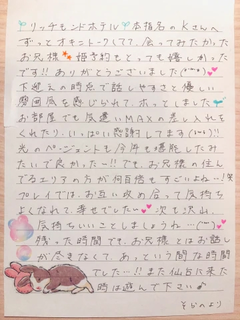 リッチモンドホテル 本指名のKさんへ
ずっとオキニトークしてて、会ってみたかった
お兄様 姫予約もとっても嬉しかった
です!! ありがとうございました(*^^*)
下迎えの時点で話しやすさと優しい
雰囲気を感じられて、ホッとしました
お部屋でも気遣いMAXの差し入れを
くれたり、いっぱい感謝してます(｡>᎑<｡)!!
光のページェントも今年も堪能したみ
たいで良かったー!! でも、お兄様の住ん
でるエリアの方が何百倍もすごいよね…!笑
プレイでは、お互い攻め合って気持ち
よくなれて、幸せでした 次も沢山
気持ちいいことしましょうね…(*^^*)
残った時間でも、お兄様とはお話し
が尽きなくて、あっという間な時間
でしたー!! また仙台に来た
時は遊んで下さい♪
そらのより